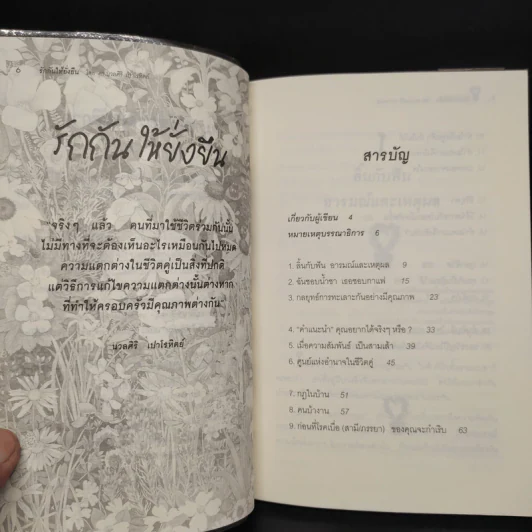 ๖ รักกันให้ยั่งยืน
รักกัน ให้ยั่งยืน
"จริงๆ แล้ว คนที่มาใช้ชีวิตร่วมกันนั้น
ไม่มีทางที่จะต้องเห็นอะไรเหมือนกันไปหมด
ความแตกต่างในชีวิตคู่เป็นสิ่งที่ปกติ
แต่วิธีการแก้ไขความแตกต่างนั้นต่างหาก
ที่ทำให้ครอบครัวมีคุณภาพต่างกัน"
นวลศิริ เปาโรหิตย์
สารบัญ
เกี่ยวกับผู้เขียน 4
หมายเหตุบรรณาธิการ 6
1. ลิ้นกับฟัน อารมณ์และเหตุผล 9
2. ฉันชอบน้ำชา เธอชอบกาแฟ 15
3. กลยุทธ์การทะเลาะกันอย่างมีคุณภาพ 23
4. "คำแนะนำ" คุณอยากได้จริงๆ หรือ ? 33
5. เมื่อความสัมพันธ์ เป็นสามเส้า 39
6. ศูนย์แห่งอำนาจในชีวิตคู่ 45
7. กฎในบ้าน 51
8. คนบ้างาน 57
9. ก่อนที่โรคเบื่อ (สามี/ภรรยา) ของคุณจะกำเริบ 63